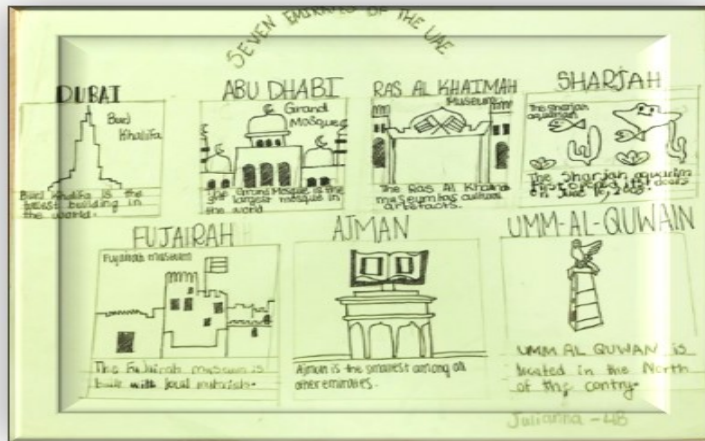 SEVEN EMIRATES OF THE UAE
DUBAI
Burj
Khalifa
Burj Khalifa is the
tallest building in
the world.
ABU DHABI
Grand
Mosque
The Grand Mosque is the
largest mosque in
the world
RAS AL KHAIMAH
Museum
The Ras Al Khaima
museum has culture
artefacts.
SHARJAH
The sharjah
aquarium
The Sharjah aquarium
first opened its doors
in June
FUJAIRAH
Fujairah museum
The Fujairah museum is
built with local materials.
AJMAN
Ajman is the smallest among all
other emirates.
UMM-AL-QUWAIN
UMM AL QUWAN is
located in the North
of the contry.
Julianna - 4B